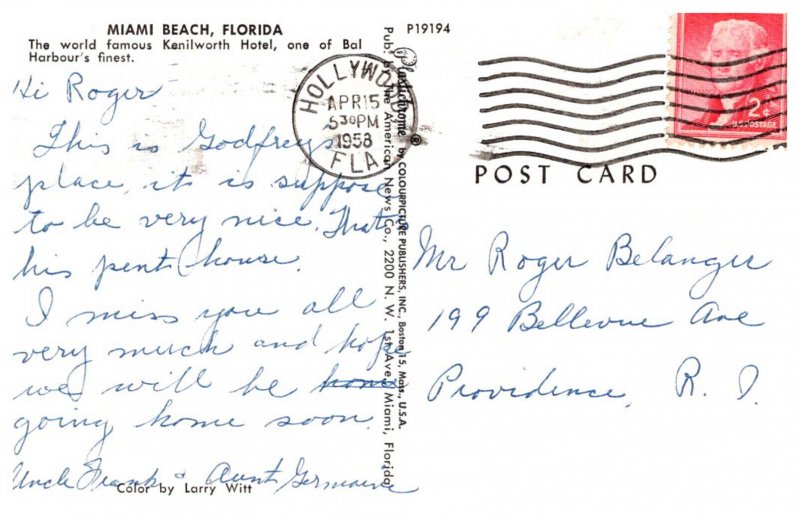 MIAMI BEACH, FLORIDA
The world famous Kenilworth Hotel, one of Bal
Harbour's finest.
Hi Roger
This is Godfreys
place, it is suppose
to be very nice. Thats
his pent house.
I miss you all
very much and hope
we will be home
going home soon.
Uncle Frank & Aunt Germaine
Color by Larry Witt
P19194
Plastichrome ® by COLOURPICTURE PUBLISHERS, INC., Boston 15, Mass., U.S.A.
Pub. by The American News Co., 2200 N. W. 1st Ave., Miami, Florida
HOLLYWOOD
APR 15
530PM
1958
FLA
2¢
U.S. POSTAGE
POST CARD
Mr Roger Belanger
199 Bellevue Ave
Providence, R. I.